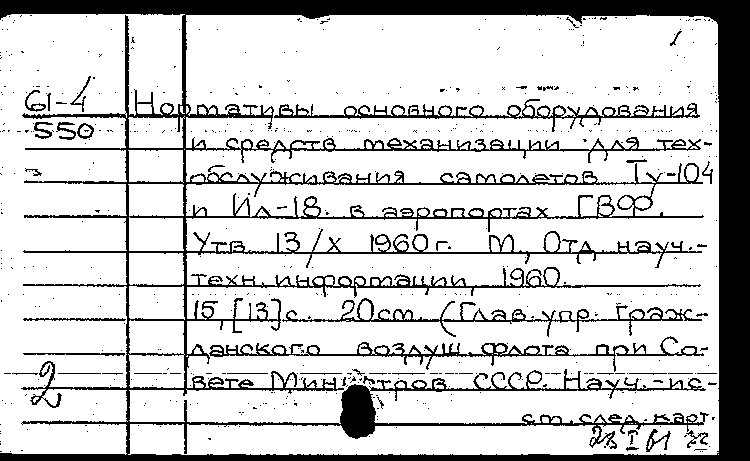 1
61-4
550
Нормативы основного оборудования
и средств механизации для тех-
обслуживания самолетов Ту-104
и Ил-18 в аэропортах ГВФ.
Утв 13/X 1960г. М., Отд. науч.-
техн. информации, 1960.
15,[13]с. 20см. (Глав. упр. граж-
данского воздуш. флота при Со-
вете Министров СССР. Науч.-ис-
2
см. след. карт.